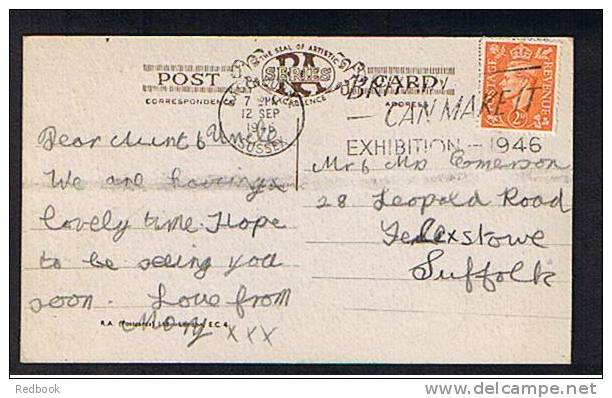 THE SEAL OF ARTISTIC
POST CARD
RA
SERIES
CORRESPONDENCE
EXCELLENCE
ADDRESS
7 PM
12 SEP
SUSSEX
BRITAIN
CAN MAKE IT
EXHIBITION - 1946
POSTAGE
REVENUE
2D
Dear Aunt & Uncle
We are having a
lovely time. Hope
to be seeing you
soon. Love from
Mary xxx
Mr & Mrs Emerson
28 Leopold Road
Felixstowe
Suffolk
R.A. (Postcards) Ltd. London, E.C.4.
Redbook
www.delcampe.net